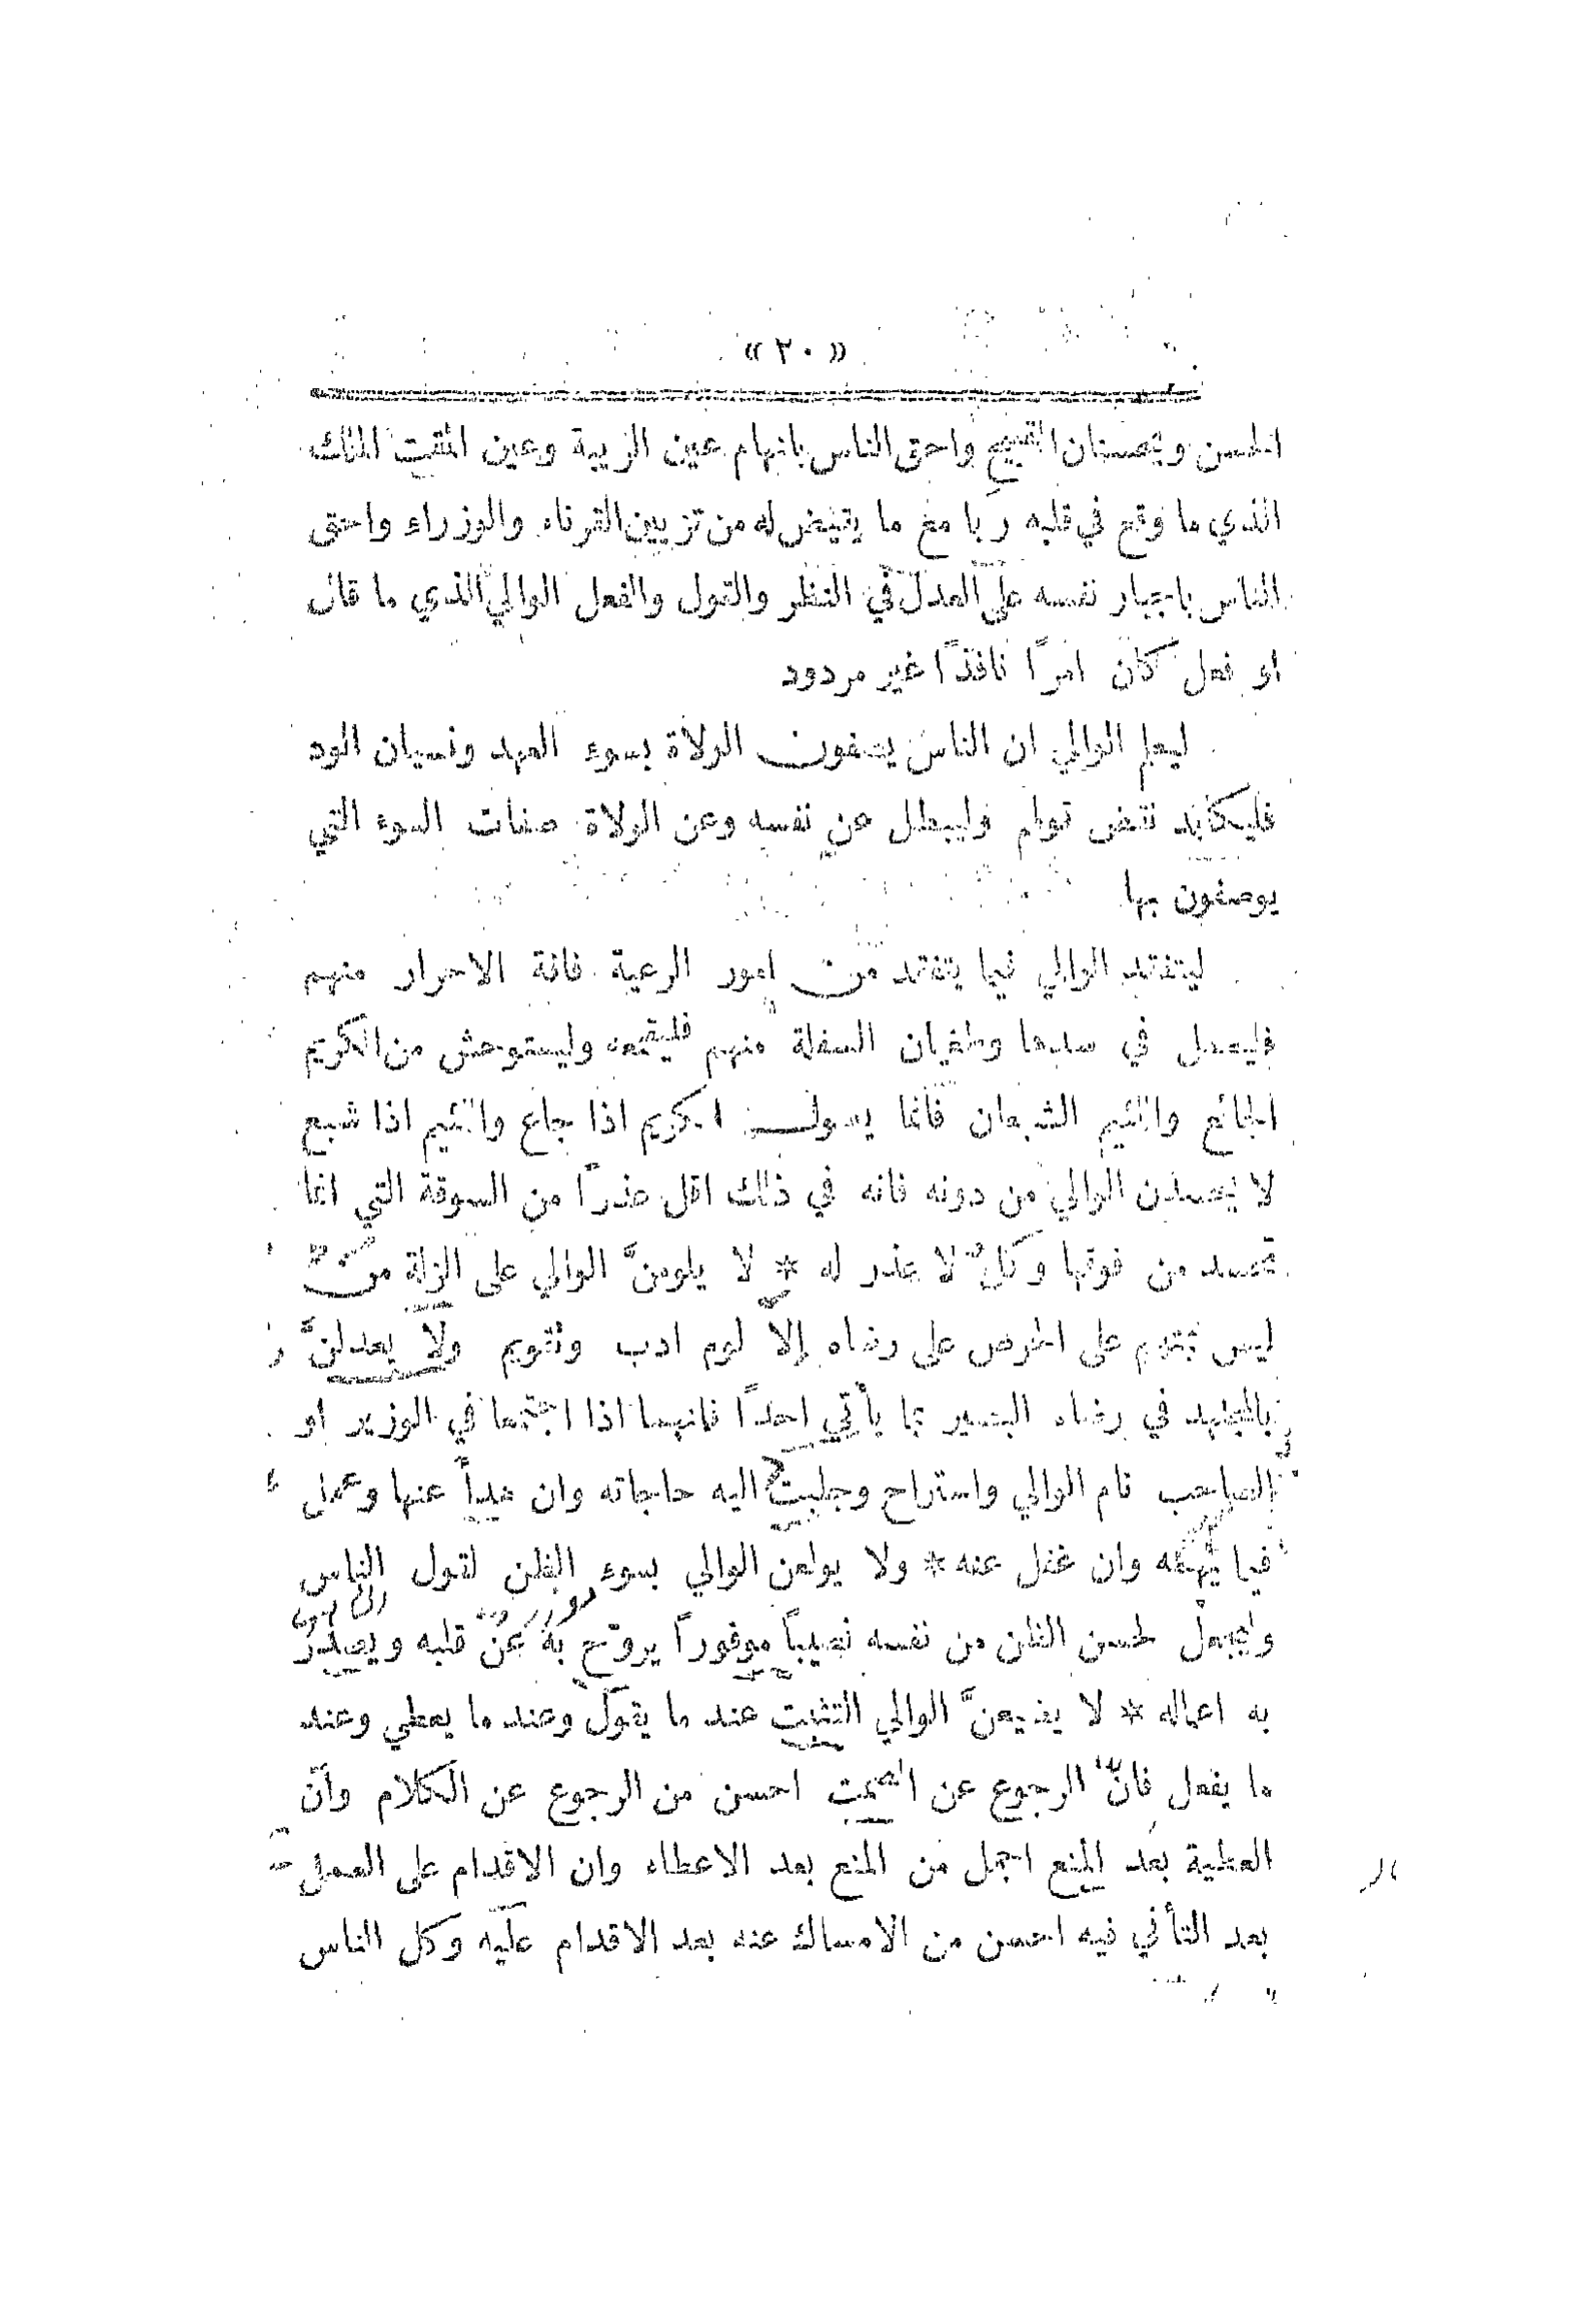 « ٢٠ »
الحسن ويحسنان القبيح واحق الناس باتهام عين الريبة وعين المقت الملك
الذي ما وقع في قلبه ربا مع ما يقيض له من تزيين القرناء والوزراء واحق
الناس باجبار نفسه على العدل في النظر والقول والفعل الوالي الذي ما قال
او فعل كان امرًا نافذًا غير مردود
ليعلم الوالي ان الناس يصفون الولاة بسوء العهد ونسيان الود
فليكابد نقض قولهم وليبطل عن نفسه وعن الولاة صفات السوء التي
يوصفون بها
ليتفقد الوالي فيما يتفقد من امور الرعية فاقة الاحرار منهم
فليعمل في سدها وطغيان السفلة منهم فليقمعه وليستوحش من الكريم
الجائع واللئيم الشبعان فانما يصول الكريم اذا جاع واللئيم اذا شبع
لا يحسدن الوالي من دونه فانه في ذلك اقل عذرًا من السوقة التي انما
تحسد من فوقها وكلٌ لا عذر له * لا يلومنَّ الوالي على الزلة من
ليس بمتهم على الحرص على رضاه إلاَّ لوم ادب وتقويم ولا يعدلنَّ
بالمجتهد في رضاه البصير بما يأتي احدًا فانهما اذا اجتمعا في الوزير او
الصاحب نام الوالي واستراح وجلبت اليه حاجاته وان هدأ عنها وعمل
فيما يهمه وان غفل عنه * ولا يولعن الوالي بسوء الظن لقول الناس
وليجعل لحسن الظن من نفسه نصيباً موفورًا يروّح به عن قلبه ويصدر
به اعماله * لا يضيعنَّ الوالي التثبت عند ما يقول وعند ما يعطي وعند
ما يفعل فانّ الرجوع عن الصمت احسن من الرجوع عن الكلام وان
العطية بعد المنع اجمل من المنع بعد الاعطاء وان الاقدام على العمل
بعد التأني فيه احسن من الامساك عنه بعد الاقدام عليه وكل الناس